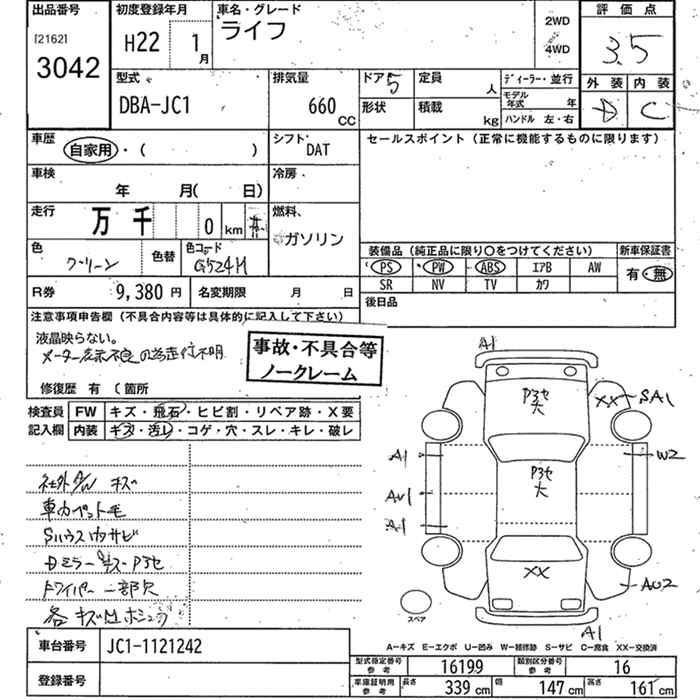 出品番号 初度登録年月 車名・グレード 評価点
[2162] H22 1月 ライフ 2WD 3.5
3042 4WD
外装 内装
D C
型式 排気量 ドア 5 定員 人 ディーラー・並行
DBA-JC1 660 CC 形状 積載 kg モデル年式 年
ハンドル 左・右
車歴 シフト セールスポイント (正常に機能するものに限ります)
自家用・( ) DAT
車検 冷房
年 月( 日)
走行 燃料
万 千 0 km ガソリン
色 色替 色コード 装備品 (純正品に限り○をつけてください) 新車保証書
グリーン G524M PS PW ABS エアB AW 有・無
R券 9,380 円 名変期限 月 日 SR NV TV カワ
後日品
注意事項申告欄 (不具合内容等は具体的に記入して下さい)
液晶映らない。
メーター表示不良の為走行不明
事故・不具合等
ノークレーム
修復歴 有 〔箇所
検査員 FW キズ・飛石・ヒビ割・リペア跡・X要
記入欄 内装 キズ・汚レ・コゲ・穴・スレ・キレ・破レ
社外A/W キズ
車内ペット毛
Sハウス内サビ
Dミラーキズ・P3セ
ドワイパー一部欠
各キズ凹ホシュウ
A1
P3セ
大
XX SA1
A1 W2
P3セ
大
AU1
A1
XX
AU2
スペア
A1
A−キズ E−エクボ U−凹み W−補修跡 S−サビ C−腐食 XX−交換済
車台番号 JC1-1121242
登録番号
型式指定番号 参考 16199 類別区分番号 参考 16
車庫証明用 参考 長さ 339 cm 幅 147 cm 高さ 161 cm